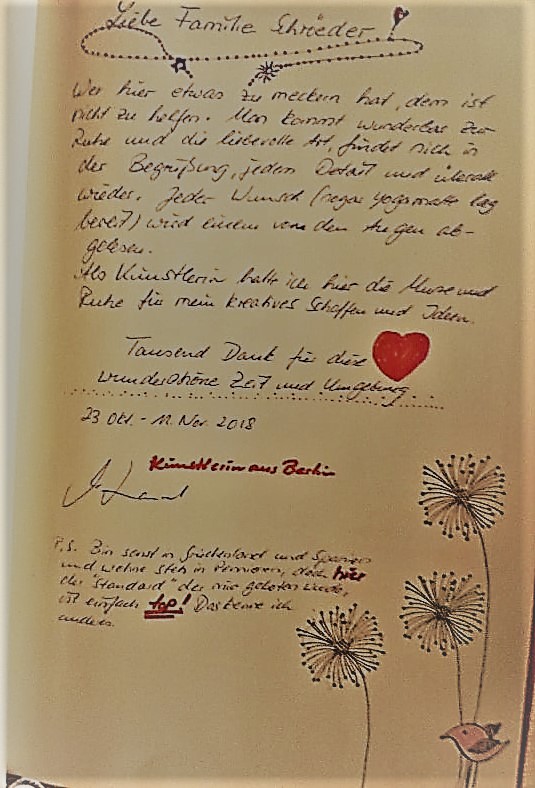 Liebe Familie Schrieder
Wer hier etwas zu meckern hat, dem ist
nicht zu helfen. Man kommt wunderbar zur
Ruhe und die liebevolle Art, findet sich in
der Begrüßung, jedem Detail und überall
wieder. Jeder Wunsch (sogar Yogamatte lag
bereit) wird einem von den Augen ab-
gelesen.
Als Künstlerin hatte ich hier die Muse und
Ruhe für mein kreatives Schaffen und Ideen.
Tausend Dank für diese
wunderschöne Zeit und Umgebung
23 Okt. - 11. Nov. 2018
Künstlerin aus Berlin
P.S. Bin sonst in Griechenland und Spanien
und wohne stets in Pensionen, doch hier
der "Standard" der mir geboten wurde,
ist einfach top! Das kenne ich
anders.